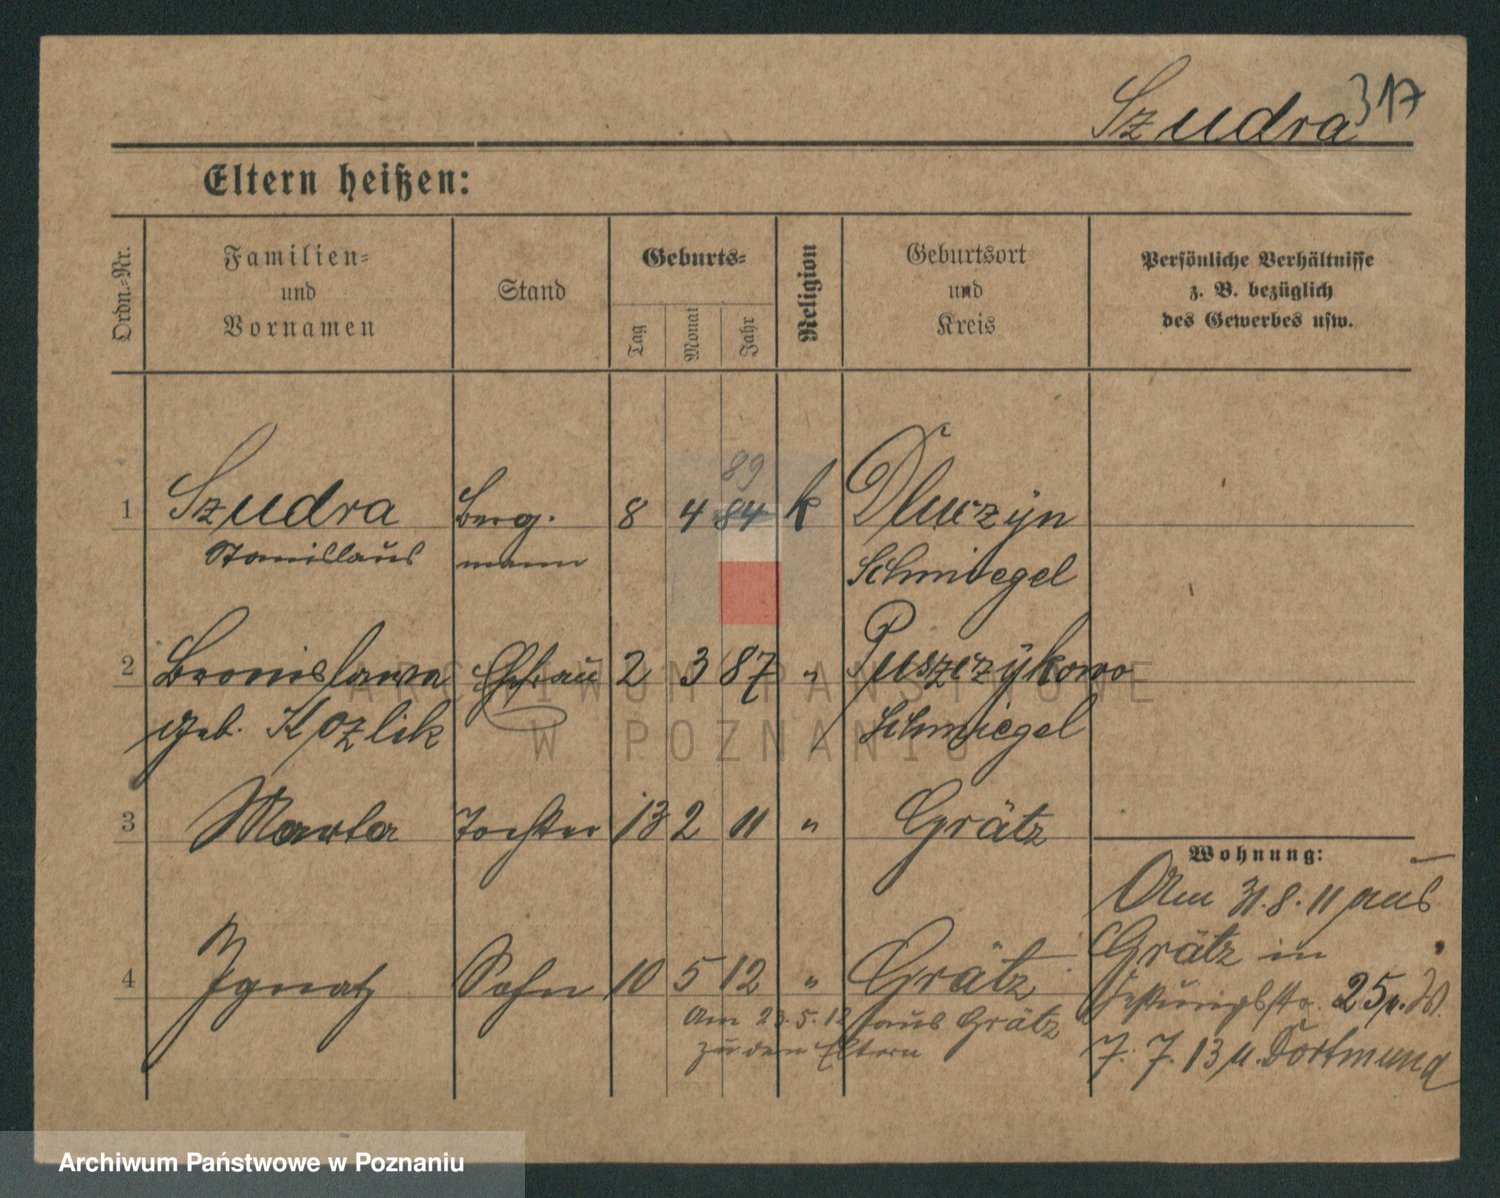 Szudra 317
Eltern heißen:
Ordn.-Nr.
Familien-
und
Vornamen
Stand
Geburts-
Tag
Monat
Jahr
Religion
Geburtsort
und
Kreis
Persönliche Verhältnisse
z. B. bezüglich
des Gewerbes usw.
89
1 Szudra Berg- 8 4 84 k Dluczyn
Stanislaus mann Schmiegel
2 Bronislawa Ehefrau 2 3 87 " Puszczykowo
geb. Kozlik Schmiegel
3 Marta Tochter 13 2 11 " Grätz
Wohnung:
Am 31.8.11 aus
Grätz in
25
7. 7. 13 n. Dortmund
4 Ignatz Sohn 10 5 12 " Grätz
Am 23.5.12 aus Grätz
zu den Eltern
ARCHIWUM PAŃSTWOWE
W POZNANIU
Archiwum Państwowe w Poznaniu